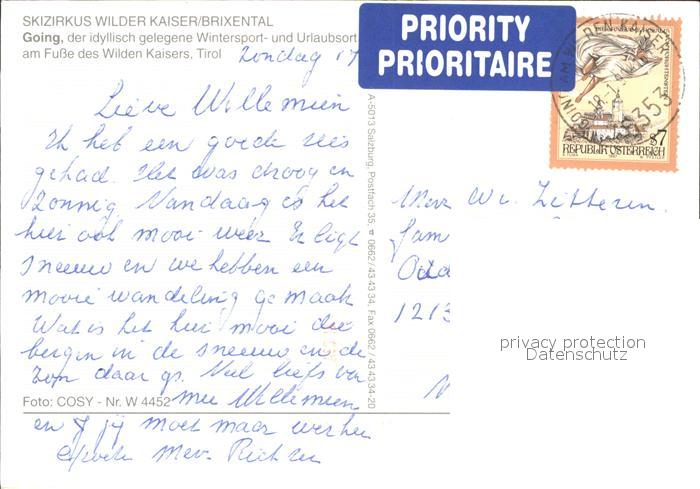 SKIZIRKUS WILDER KAISER/BRIXENTAL
Going, der idyllisch gelegene Wintersport- und Urlaubsort
am Fuße des Wilden Kaisers, Tirol
Zondag 17
PRIORITY
PRIORITAIRE
REPUBLIK ÖSTERREICH
S7
5353
Lieve Willemien
Ik heb een goede reis
gehad. Het was droog en
zonnig. Vandaag is het
hier ook mooi weer Er ligt
sneeuw en we hebben een
mooie wandeling gemaakt
Wat is het hier mooi die
bergen in de sneeuw en de
zon daar op. Veel liefs van
mee Willemien
en jij moet maar
Mev. Richter
A-5013 Salzburg, Postfach 35, 0662/43 43 34, Fax 0662/43 43 34-20
Foto: COSY - Nr. W 4452
Mevr W. Zitteren.
fam
1213
privacy protection
Datenschutz